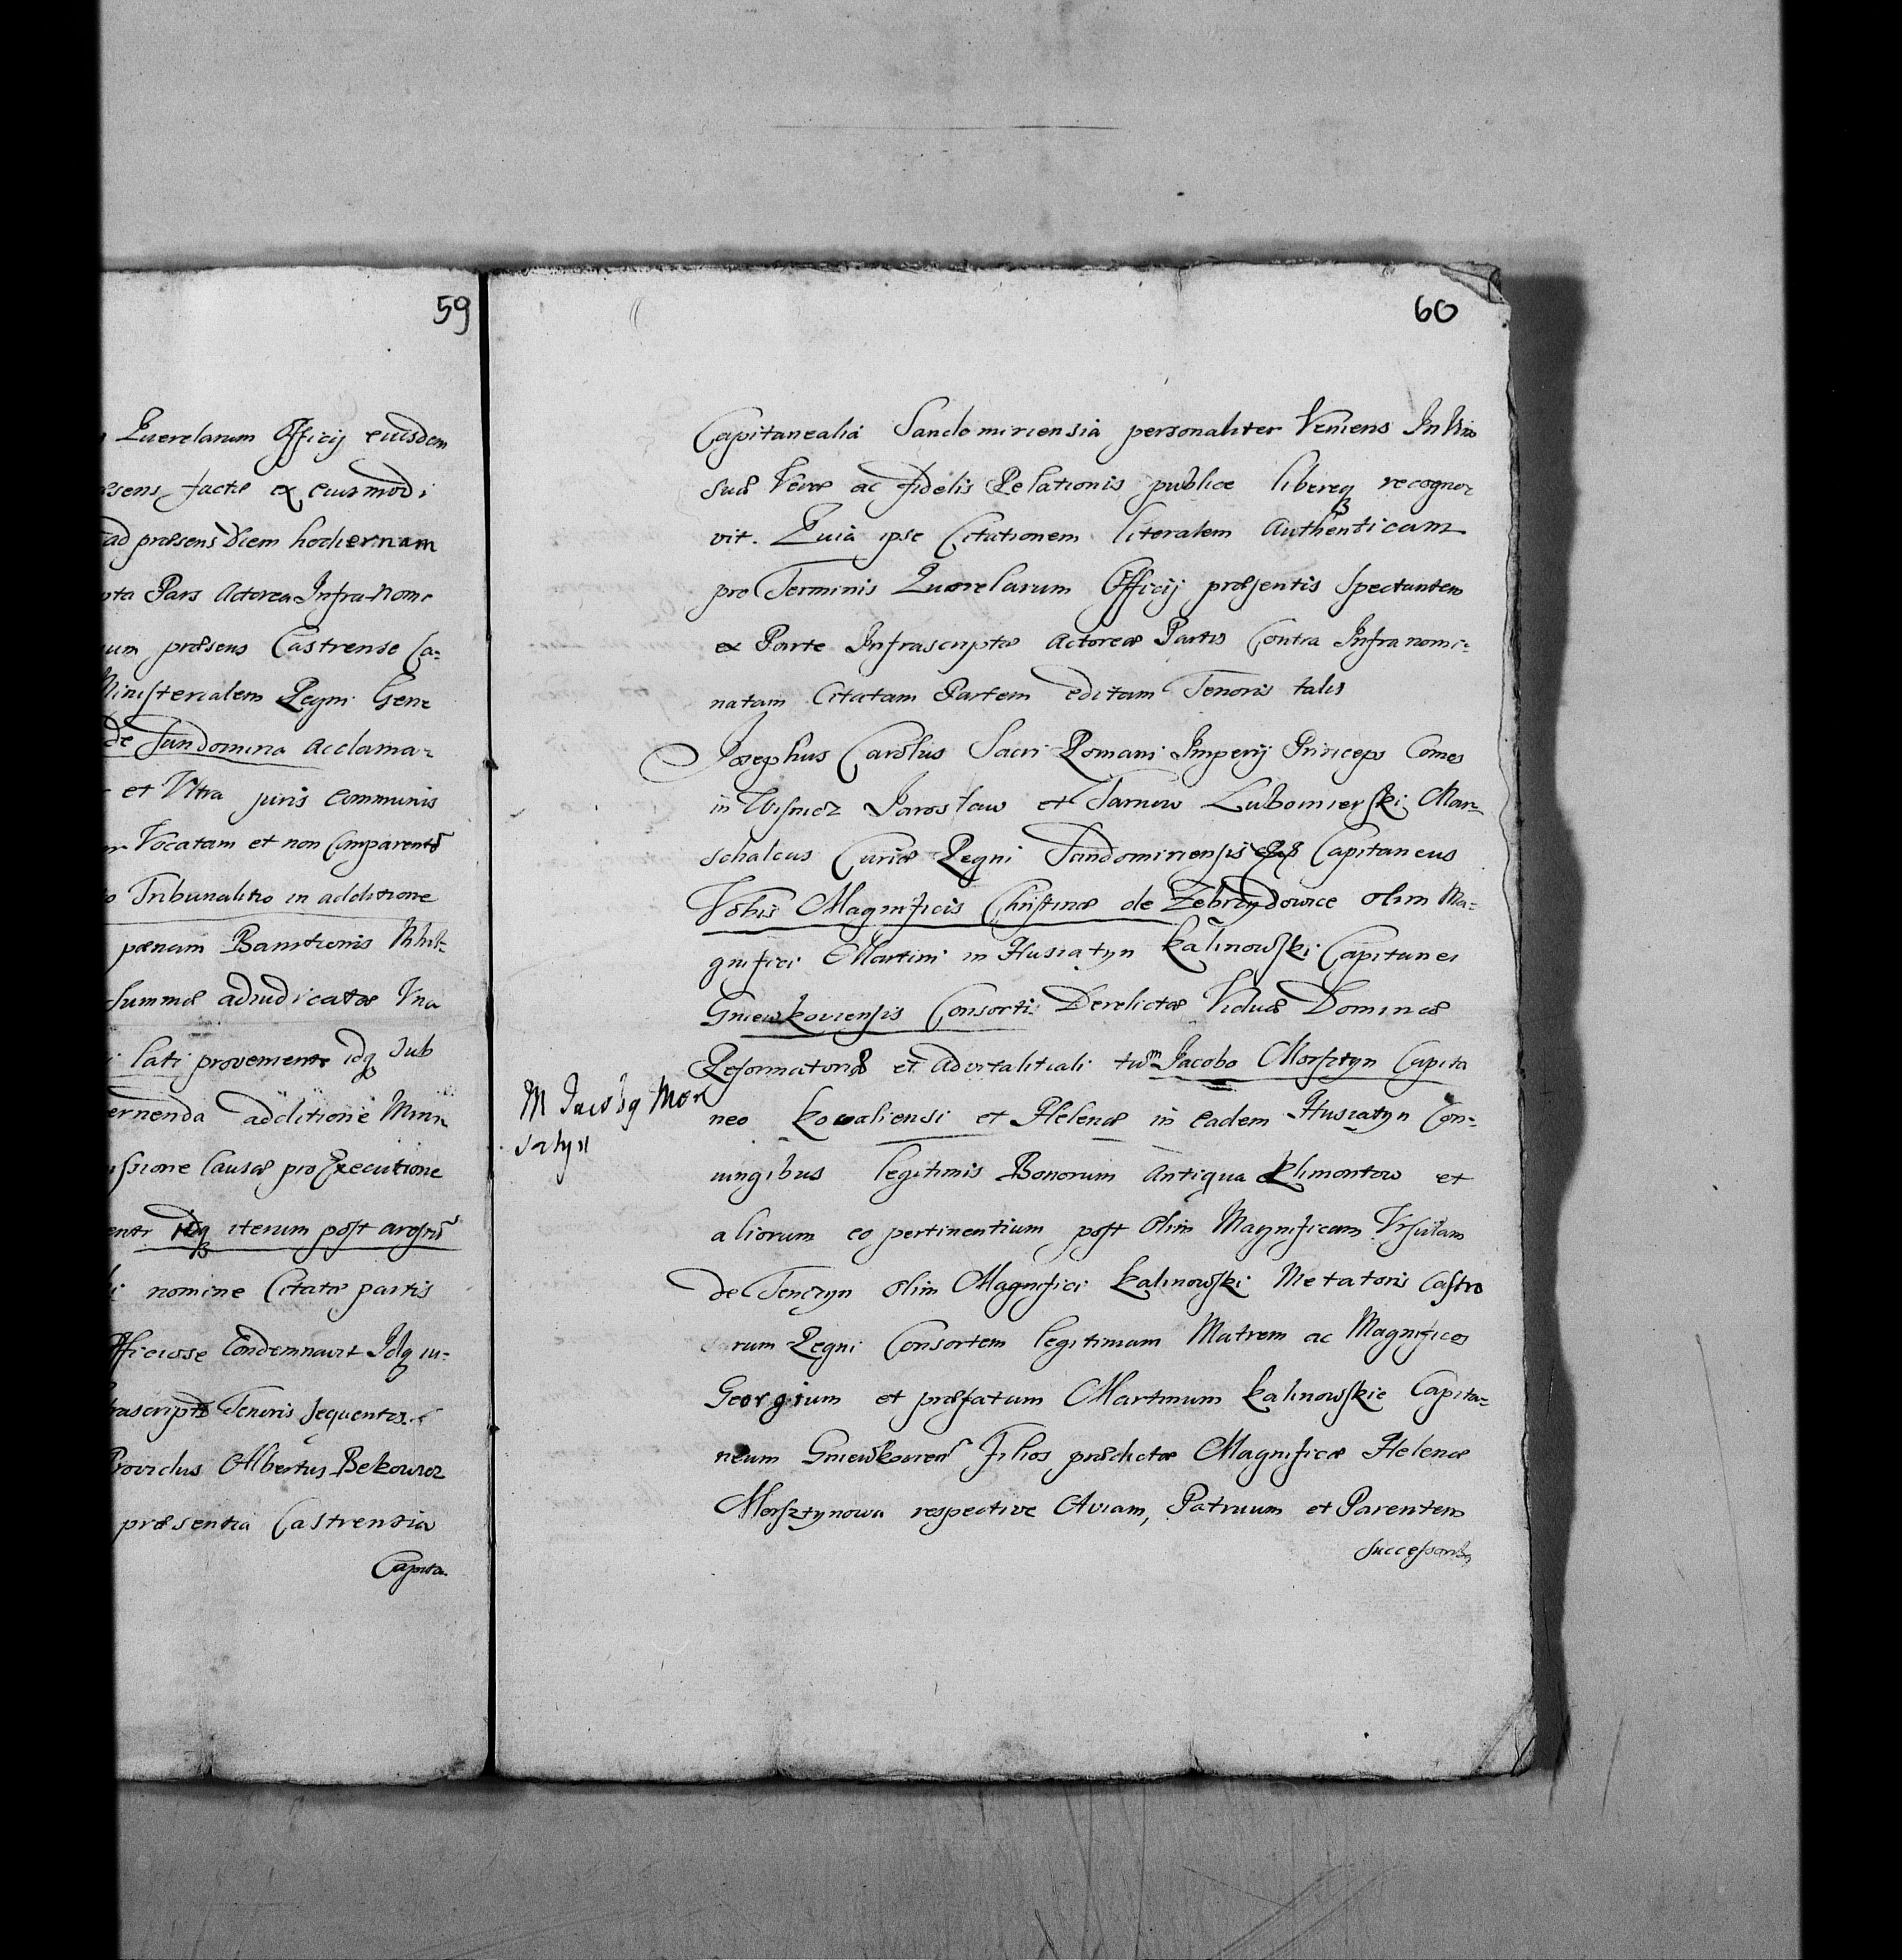 59
Querelarum Officij eiusdem
factæ ex eiusmodi
ad præsens Diem hodiernam
Pars Actorea Infra Nomi
præsens Castrense Ca-
Ministerialem Regni Gene
de Sandomiria acclama-
et Vltra juris communis
Vocatam et non Comparente
Tribunalitio in additione
pænam Bannitionis
Summæ adiudicatæ Vna
lati provenient idq Sub
additione Mini
Causæ pro Executione
idq iterum post
nomine Citatæ partis
Condemnavit Idq iu-
Tenoris sequentis
Providus Albertus Bekowicz
præsentia Castrensia
Capita
60
Capitanealia Sandomiriensia personaliter Veniens In Vim
suæ Veræ ac fidelis Relationis publice libereq recogno-
vit. Quia ipse Citationem literalem Authenticam
pro Terminis Querelarum Officij præsentis Spectantem
ex Parte Infrascriptæ Actoreæ Partis Contra Infra nomi-
natam Citatam Partem editam Tenoris talis
Josephus Carolus Sacri Romani Imperij Princeps Comes
in Wisnicz Jarosław et Tarnow Lubomierski Mar-
schalcus Curiæ Regni Sandomiriensis Capitaneus
Vobis Magnificis Christinæ de Zebrzydowice olim Ma-
gnifici Martini in Husiatyn Kalinowski Capitanei
Gniewkoviensis Consorti Derelictæ Viduæ Dominæ
Reformatoriæ et Advitaliticali tum Jacobo Morsztyn Capita
M Jacobq Mor
sztyn
neo Kowaliensi et Helenæ in eadem Husiatyn Con-
iungibus legitimis Bonorum antiqua Klimontow et
aliorum eo pertinentium post Olim Magnificam Vrsulam
de Tenczyn olim Magnifici Kalinowski Metatoris Castro
rum Regni Consortem legitimam Matrem ac Magnificos
Georgium et præfatum Martinum Kalinowskie Capita-
neum Gniewkovien Filios prædictæ Magnificæ Helenæ
Morsztynowa respective Aviam, Patruum et Parentem
Successoribq